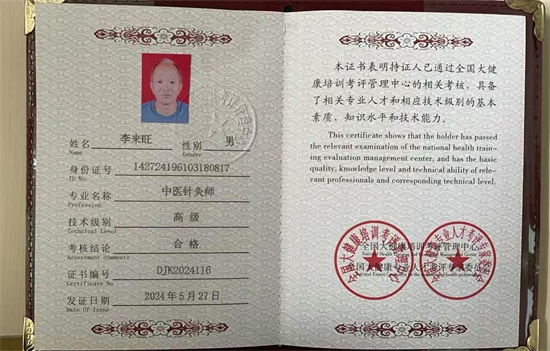 姓名 李来旺 性别 男
Name Gender
身份证号 142724196103180817
ID No.
专业名称 中医针灸师
Profession
技术级别 高级
Technical Level
考核结论 合格
Assessment comments
证书编号 DJK2024116
Certificate No.
发证日期 2024年5月27日
Date Of Issue
本证书表明持证人已通过全国大健
康培训考评管理中心的相关考核，具备
了相关专业人才和相应技术级别的基本
素质、知识水平和技术能力。
This certificate shows that the holder has passed
the relevant examination of the national health train-
ing evaluation management center, and has the basic
quality, knowledge level and technical ability of rele-
vant professionals and corresponding technical level.
全国大健康培训考评管理中心
全国大健康专业人才考评专家委员会